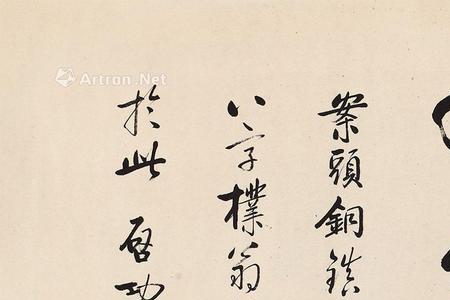 案頭銅鎮
八字樸翁
於此 啓功
Artron.Net